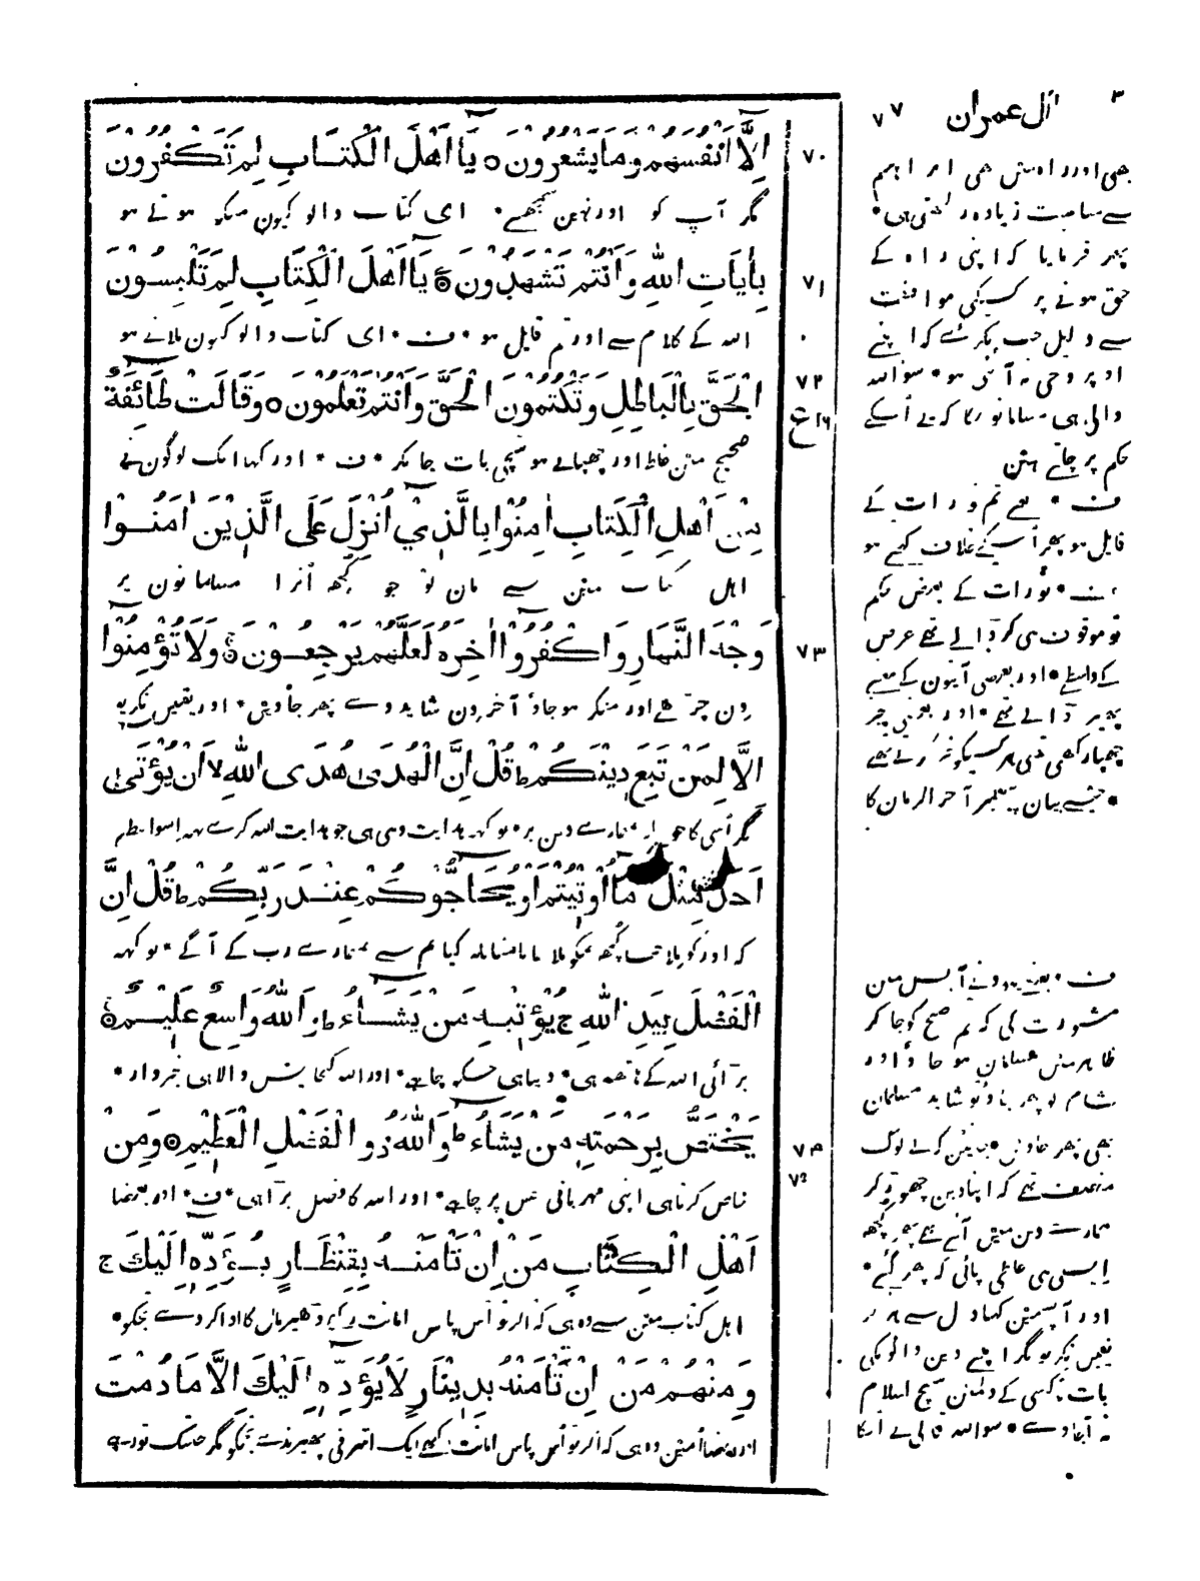 ۳
اٰل عمران
۷۷
اِلَّا اَنْفُسَهُمْ وَمَا يَشْعُرُوْنَ ○ يَا اَهْلَ الْكِتَابِ لِمَ تَكْفُرُوْنَ
۷۰
مگر آپ کو اور نہین سمجھتے • ای کتاب والو کیون منکر ہوتے ہو
بِاٰيَاتِ اللّٰهِ وَاَنْتُمْ تَشْهَدُوْنَ ○ يَا اَهْلَ الْكِتَابِ لِمَ تَلْبِسُوْنَ
۷۱
اللہ کے کلام سے اور تم قایل ہو • ف • ای کتاب والو کیون ملاتے ہو
الْحَقَّ بِالْبَاطِلِ وَتَكْتُمُوْنَ الْحَقَّ وَاَنْتُمْ تَعْلَمُوْنَ ○ وَقَالَتْ طَائِفَةٌ
۷۲
ع ۱۶
صحیح مین غلط اور چھپاتے ہو سچی بات جانکر • ف • اور کہا ایک لوگون نے
مِنْ اَهْلِ الْكِتَابِ اٰمِنُوْا بِالَّذِيْ اُنْزِلَ عَلَى الَّذِيْنَ اٰمَنُوْا
اہل کتاب مین سے مان لو جو کچھ اُترا مسلمانون پر
وَجْهَ النَّهَارِ وَاكْفُرُوْا اٰخِرَهُ لَعَلَّهُمْ يَرْجِعُوْنَ ○ وَلَا تُؤْمِنُوْا
۷۳
دِن چڑھے اور منکر ہو جاؤ آخر دِن شاید وے پھر جاوین • اور یقین نکریو
اِلَّا لِمَنْ تَبِعَ دِيْنَكُمْ ط قُلْ اِنَّ الْهُدٰى هُدَى اللّٰهِ لا اَنْ يُؤْتٰى
مگر اُسی کا جو چلے تمہارے دین پر • تو کہہ ہدایت وہی ہی جو ہدایت اللہ کرے یہہ اِسواسطے
اَحَدٌ مِثْلَ مَا اُوْتِيْتُمْ اَوْ يُحَاجُّوْكُمْ عِنْدَ رَبِّكُمْ ط قُلْ اِنَّ
کہ اور کو ملا جیسا کچھ تمکو ملا تھا یا مقابلہ کیا تم سے تمہارے رب کے آگے • تو کہہ
الْفَضْلَ بِيَدِ اللّٰهِ ج يُؤْتِيْهِ مَنْ يَشَاءُ ط وَاللّٰهُ وَاسِعٌ عَلِيْمٌ ○
بڑائی اللہ کے ہاتھہ ہی • دیتا ہی جسکو چاہے • اور اللہ گنجایش والا ہی خبردار •
يَخْتَصُّ بِرَحْمَتِهٖ مَنْ يَشَاءُ ط وَاللّٰهُ ذُو الْفَضْلِ الْعَظِيْمِ ○ وَمِنْ
۷۴
۷۵
خاص کرتا ہی اپنی مہربانی جس پر چاہے • اور اللہ کا فضل بڑا ہی • ف • اور بعضا
اَهْلِ الْكِتَابِ مَنْ اِنْ تَأْمَنْهُ بِقِنْطَارٍ يُؤَدِّهٖ اِلَيْكَ ج
اہل کتاب مین سے وہ ہی کہ اگر تو اُس پاس امانت رکھے ڈھیر مال کا ادا کر دے تجکو •
وَمِنْهُمْ مَنْ اِنْ تَأْمَنْهُ بِدِيْنَارٍ لَا يُؤَدِّهٖ اِلَيْكَ اِلَّا مَا دُمْتَ
اور بعضا اُنمین وہ ہی کہ اگر تو اُس پاس امانت رکھے ایک اشرفی پھیر ندے تجکو مگر جب تک تو رہے
بھی اور راہین بھی ابراہیم
سے مناسبت زیادہ رکھتی ہی •
پھر فرمایا کہ اپنی راہ کے
حق ہونے پر کسیکی موافقت
سے دلیل جب پکڑئے کہ اپنے
اوپر وحی نہ آتی ہو • سو اللہ
والی ہی مسلمانون کا کہ یے اُسکے
حکم پر چلتے ہین
ف • یعنے تم تورات کے
قایل ہو پھر اُسکے خلاف کہتے ہو
ف • تورات کے بعض حکم
تو موقوف ہی کر ڈالے تھے غرض
کے واسطے • اور بعضی آیتون کے معنے
پھیر ڈالے تھے • اور بعضی چیز
چھپا رکھی تھی ہر کسیکو نہ کرتے تھے
• جیسے بیان پیغمبر آخر الزمان کا
ف • بعضے یہود نے آپس مین
مشورت کی کہ تم صبح کو جا کر
ظاہر مین مسلمان ہو جاؤ اور
شام کو پھر جاؤ تو شاید مسلمان
بھی پھر جاوین • جانین کہ یے لوگ
منصف تھے کہ اپنا دین چھوڑ کر
ہمارے دین مین آئے تھے پھر کچھ
ایسی ہی غلطی پائی کہ پھر گئے •
اور آپسمین کہا دل سے ہرگز
یقین نکریو مگر اپنے دین والو کی
بات تا کسی کے دل مین سچ اسلام
نہ آجاوے • سو اللہ تعالی نے اُنکا